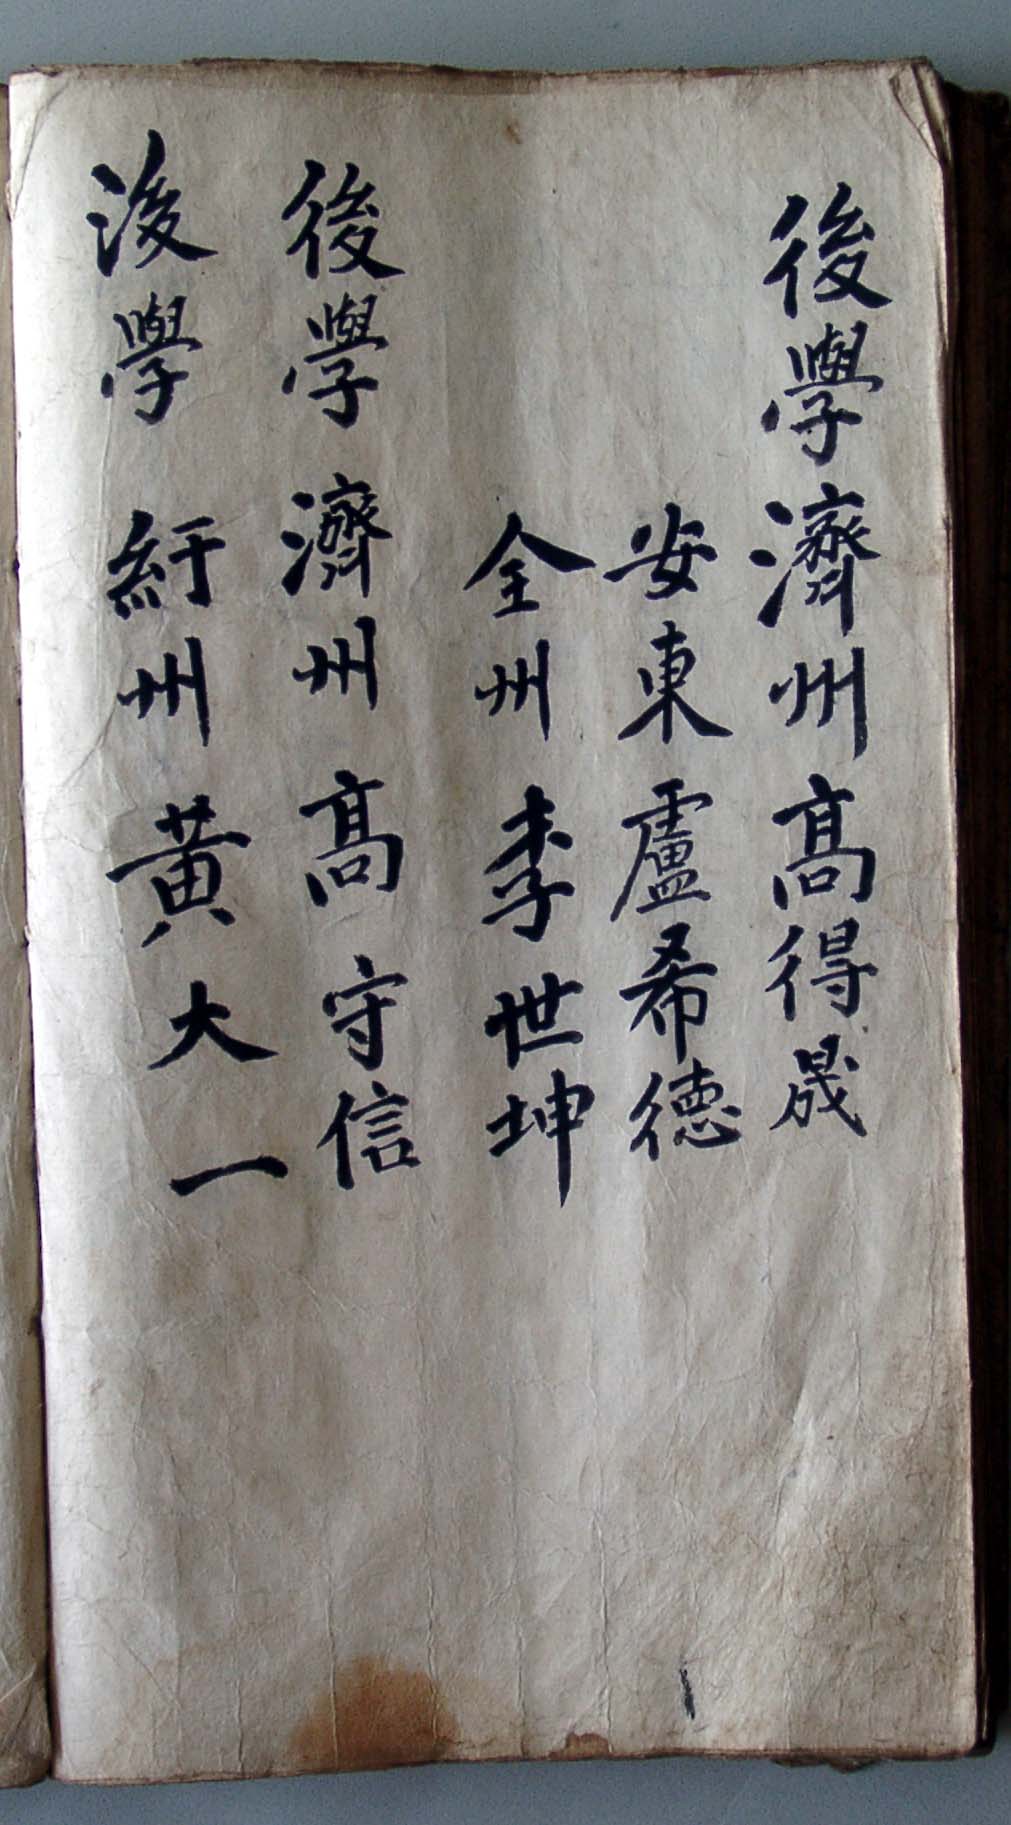 後學濟州高得晟
安東盧希德
全州李世坤
後學濟州高守信
後學紆州黃大一